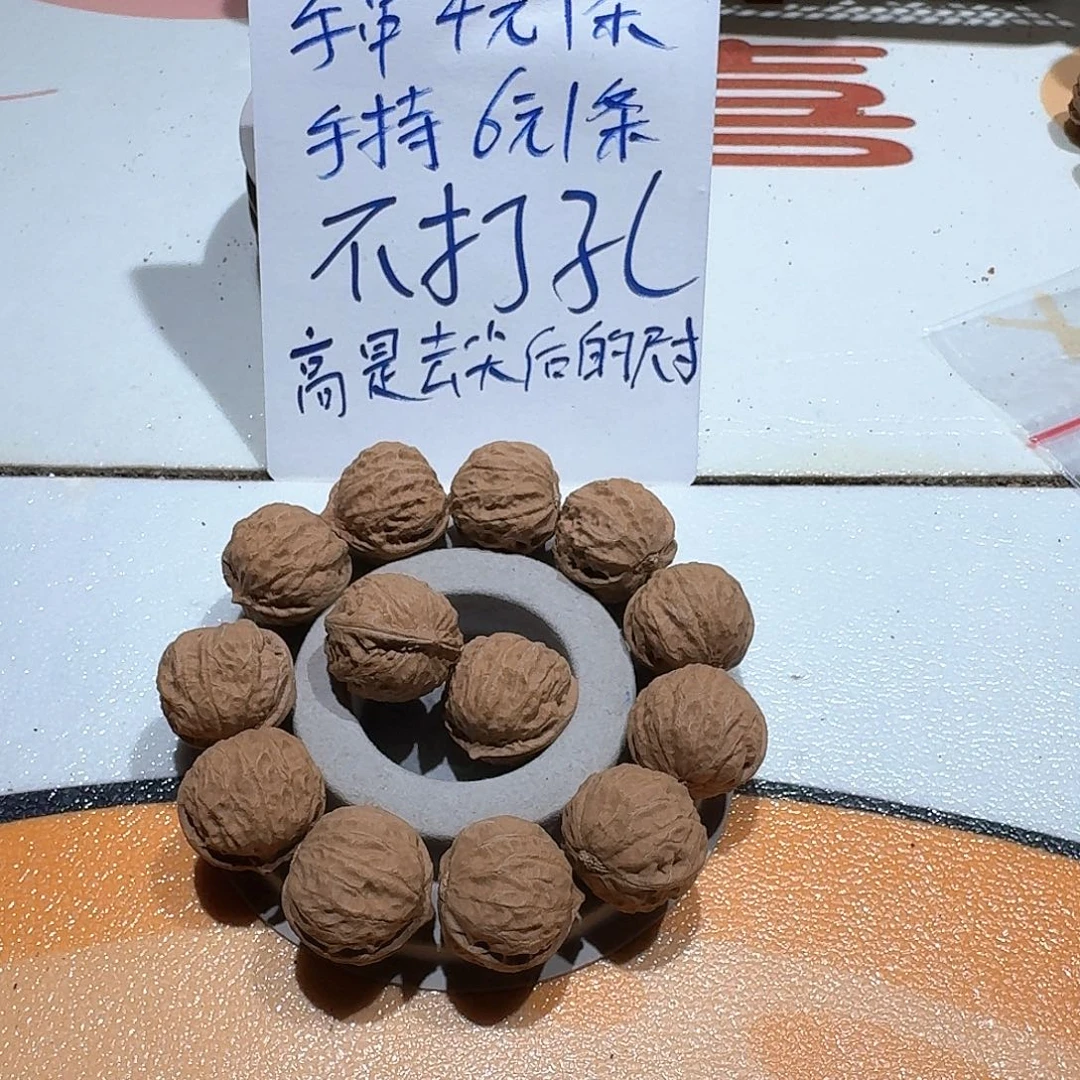 手串 4元1条
手持 6元1条
不打孔
高是去尖后的尺寸